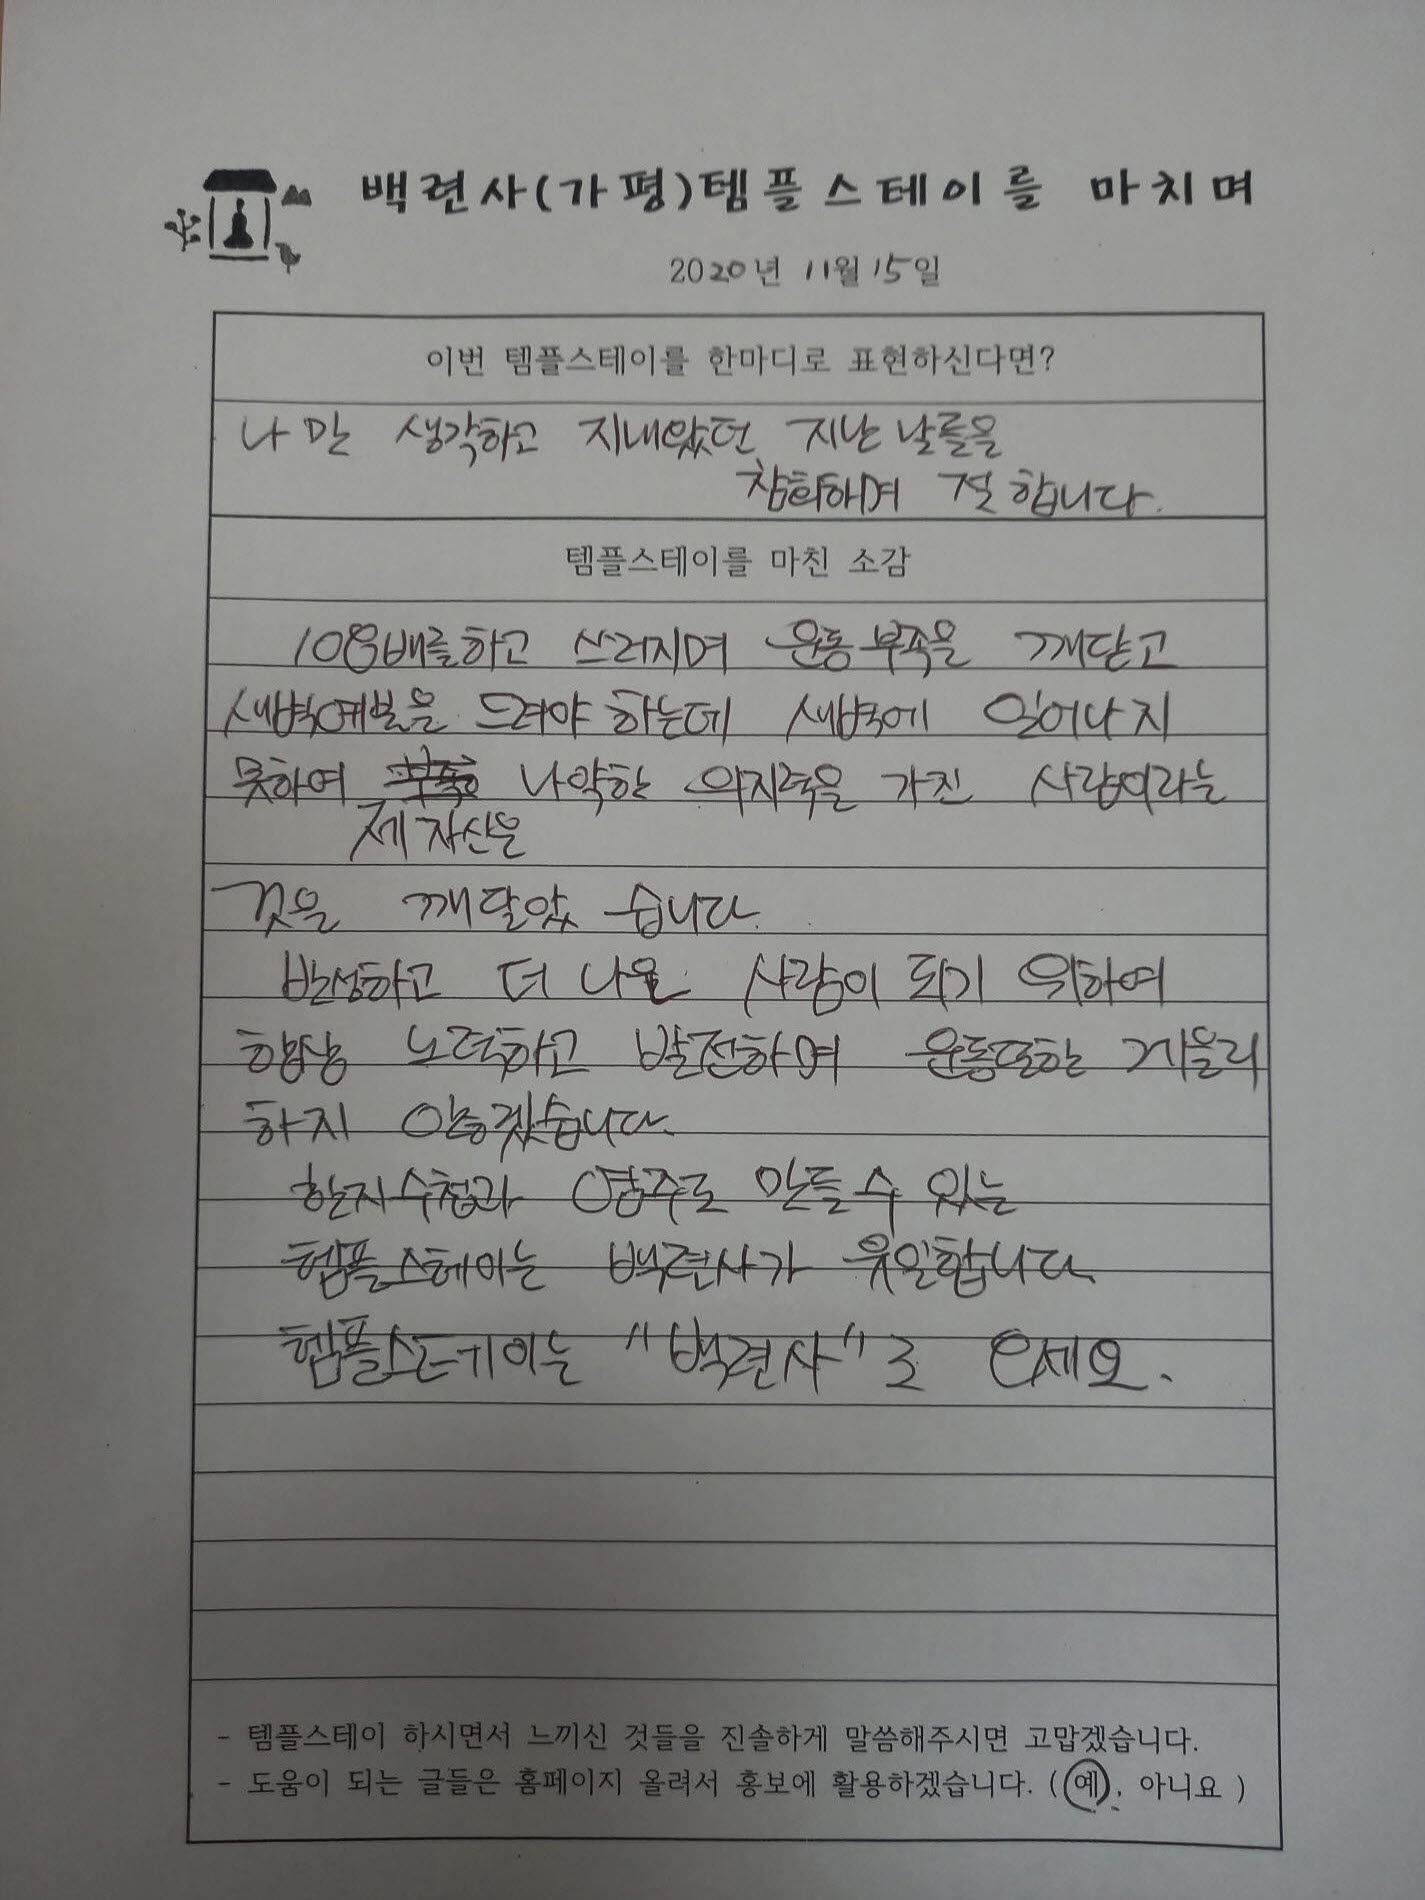 백련사(가평)템플스테이를 마치며
2020년 11월 15일
이번 템플스테이를 한마디로 표현하신다면?
나만 생각하고 지내왔던 지난 날들을
참회하며 절 합니다.
템플스테이를 마친 소감
108배를하고 쓰러지며 운동부족을 깨닫고
새벽예불을 드려야 하는데 새벽에 일어나지
못하여 나약한 의지력을 가진 사람이라는
제 자신을
것을 깨달았습니다.
반성하고 더 나은 사람이 되기 위하여
항상 노력하고 발전하며 운동또한 게을리
하지 않겠습니다.
한지수첩과 염주로 만들수 있는
템플스테이는 백련사가 유일합니다.
템플스테이는 "백련사"로 오세요.
- 템플스테이 하시면서 느끼신 것들을 진솔하게 말씀해주시면 고맙겠습니다.
- 도움이 되는 글들은 홈페이지 올려서 홍보에 활용하겠습니다. ( 예 , 아니요 )